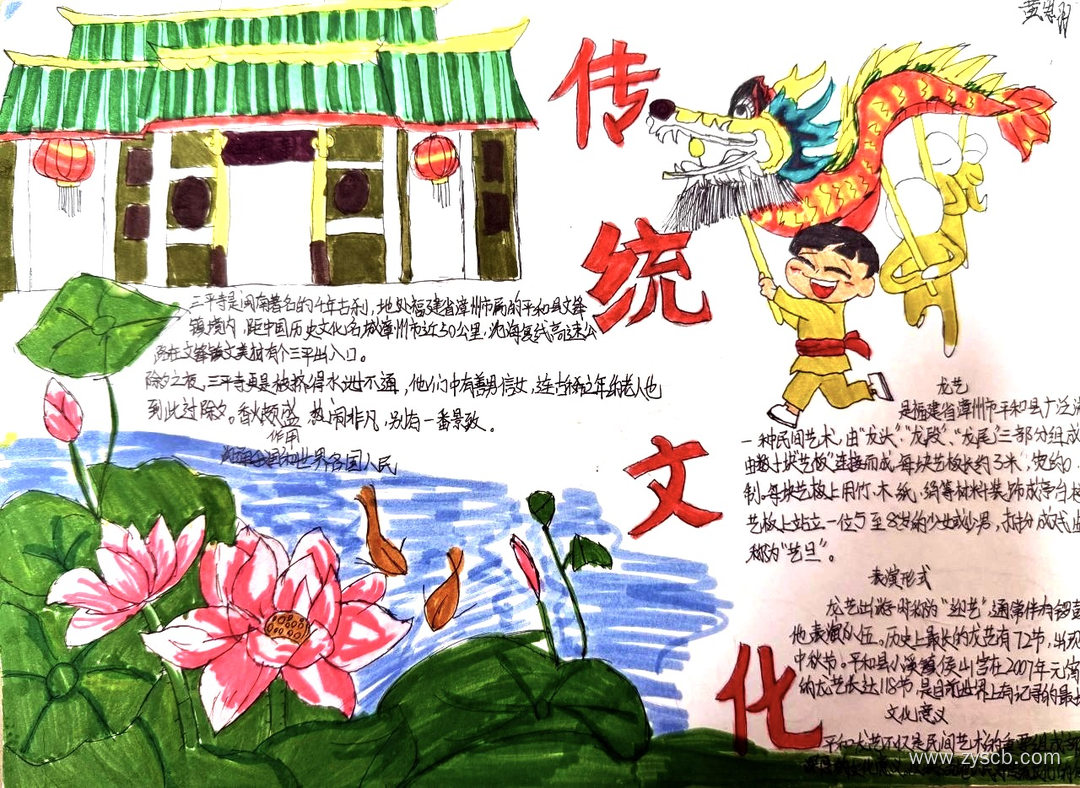 黄
传
统
文
化
三平寺是闽南著名的千年古刹，地处福建省漳州市属的平和县文峰
镇境内，距中国历史文化名城漳州市近50公里，沈海复线高速公
路在文峰镇文美村有个三平出入口。
除夕之夜，三平寺更是被挤得水泄不通，他们中有善男信女，连古稀之年的老人也
到此过除夕。香火颇盛 热闹非凡，别有一番景致。
作用
全国和世界各国人民
龙艺
是福建省漳州市平和县广泛
一种民间艺术，由"龙头"、"龙段"、"龙尾"三部分组成
由数十块"艺板"连接而成，每块艺板长约3米，宽约0.
制。每块艺板上用竹、木、纸、绢等材料装饰成亭台
艺板上站立一位5至8岁的少女或少男，扮成戏曲
称为"艺旦"。
表演形式
龙艺出游时称为"艺"，通常伴有锣鼓
他表演队伍。历史上最长的龙艺有72节，出现
中秋节。平和县小溪镇侯山宫在2007年元宵
的龙艺长达118节，是目前世界上有记录的最
文化意义
平和龙艺不仅是民间艺术的重要组成部
www.zyscb.com